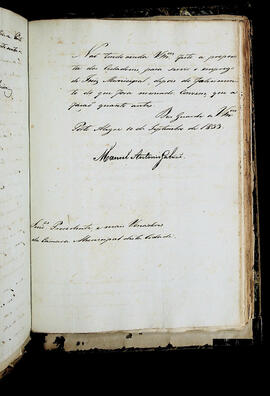 Não tendo ainda VM.ces feito a proposta
dos Cidadãos para servir o emprego
de Juiz Municipal, depois do falecimento
do que fora nomeado: Convem que a
façaõ quanto antes.
Deos Guarde a VM.ces
Porto Alegre 10 de Septembro de 1833.
Manoel Antonio Galvão
Snr.es Presidente, e mais Vereadores
da Camara Municipal desta Cidade.